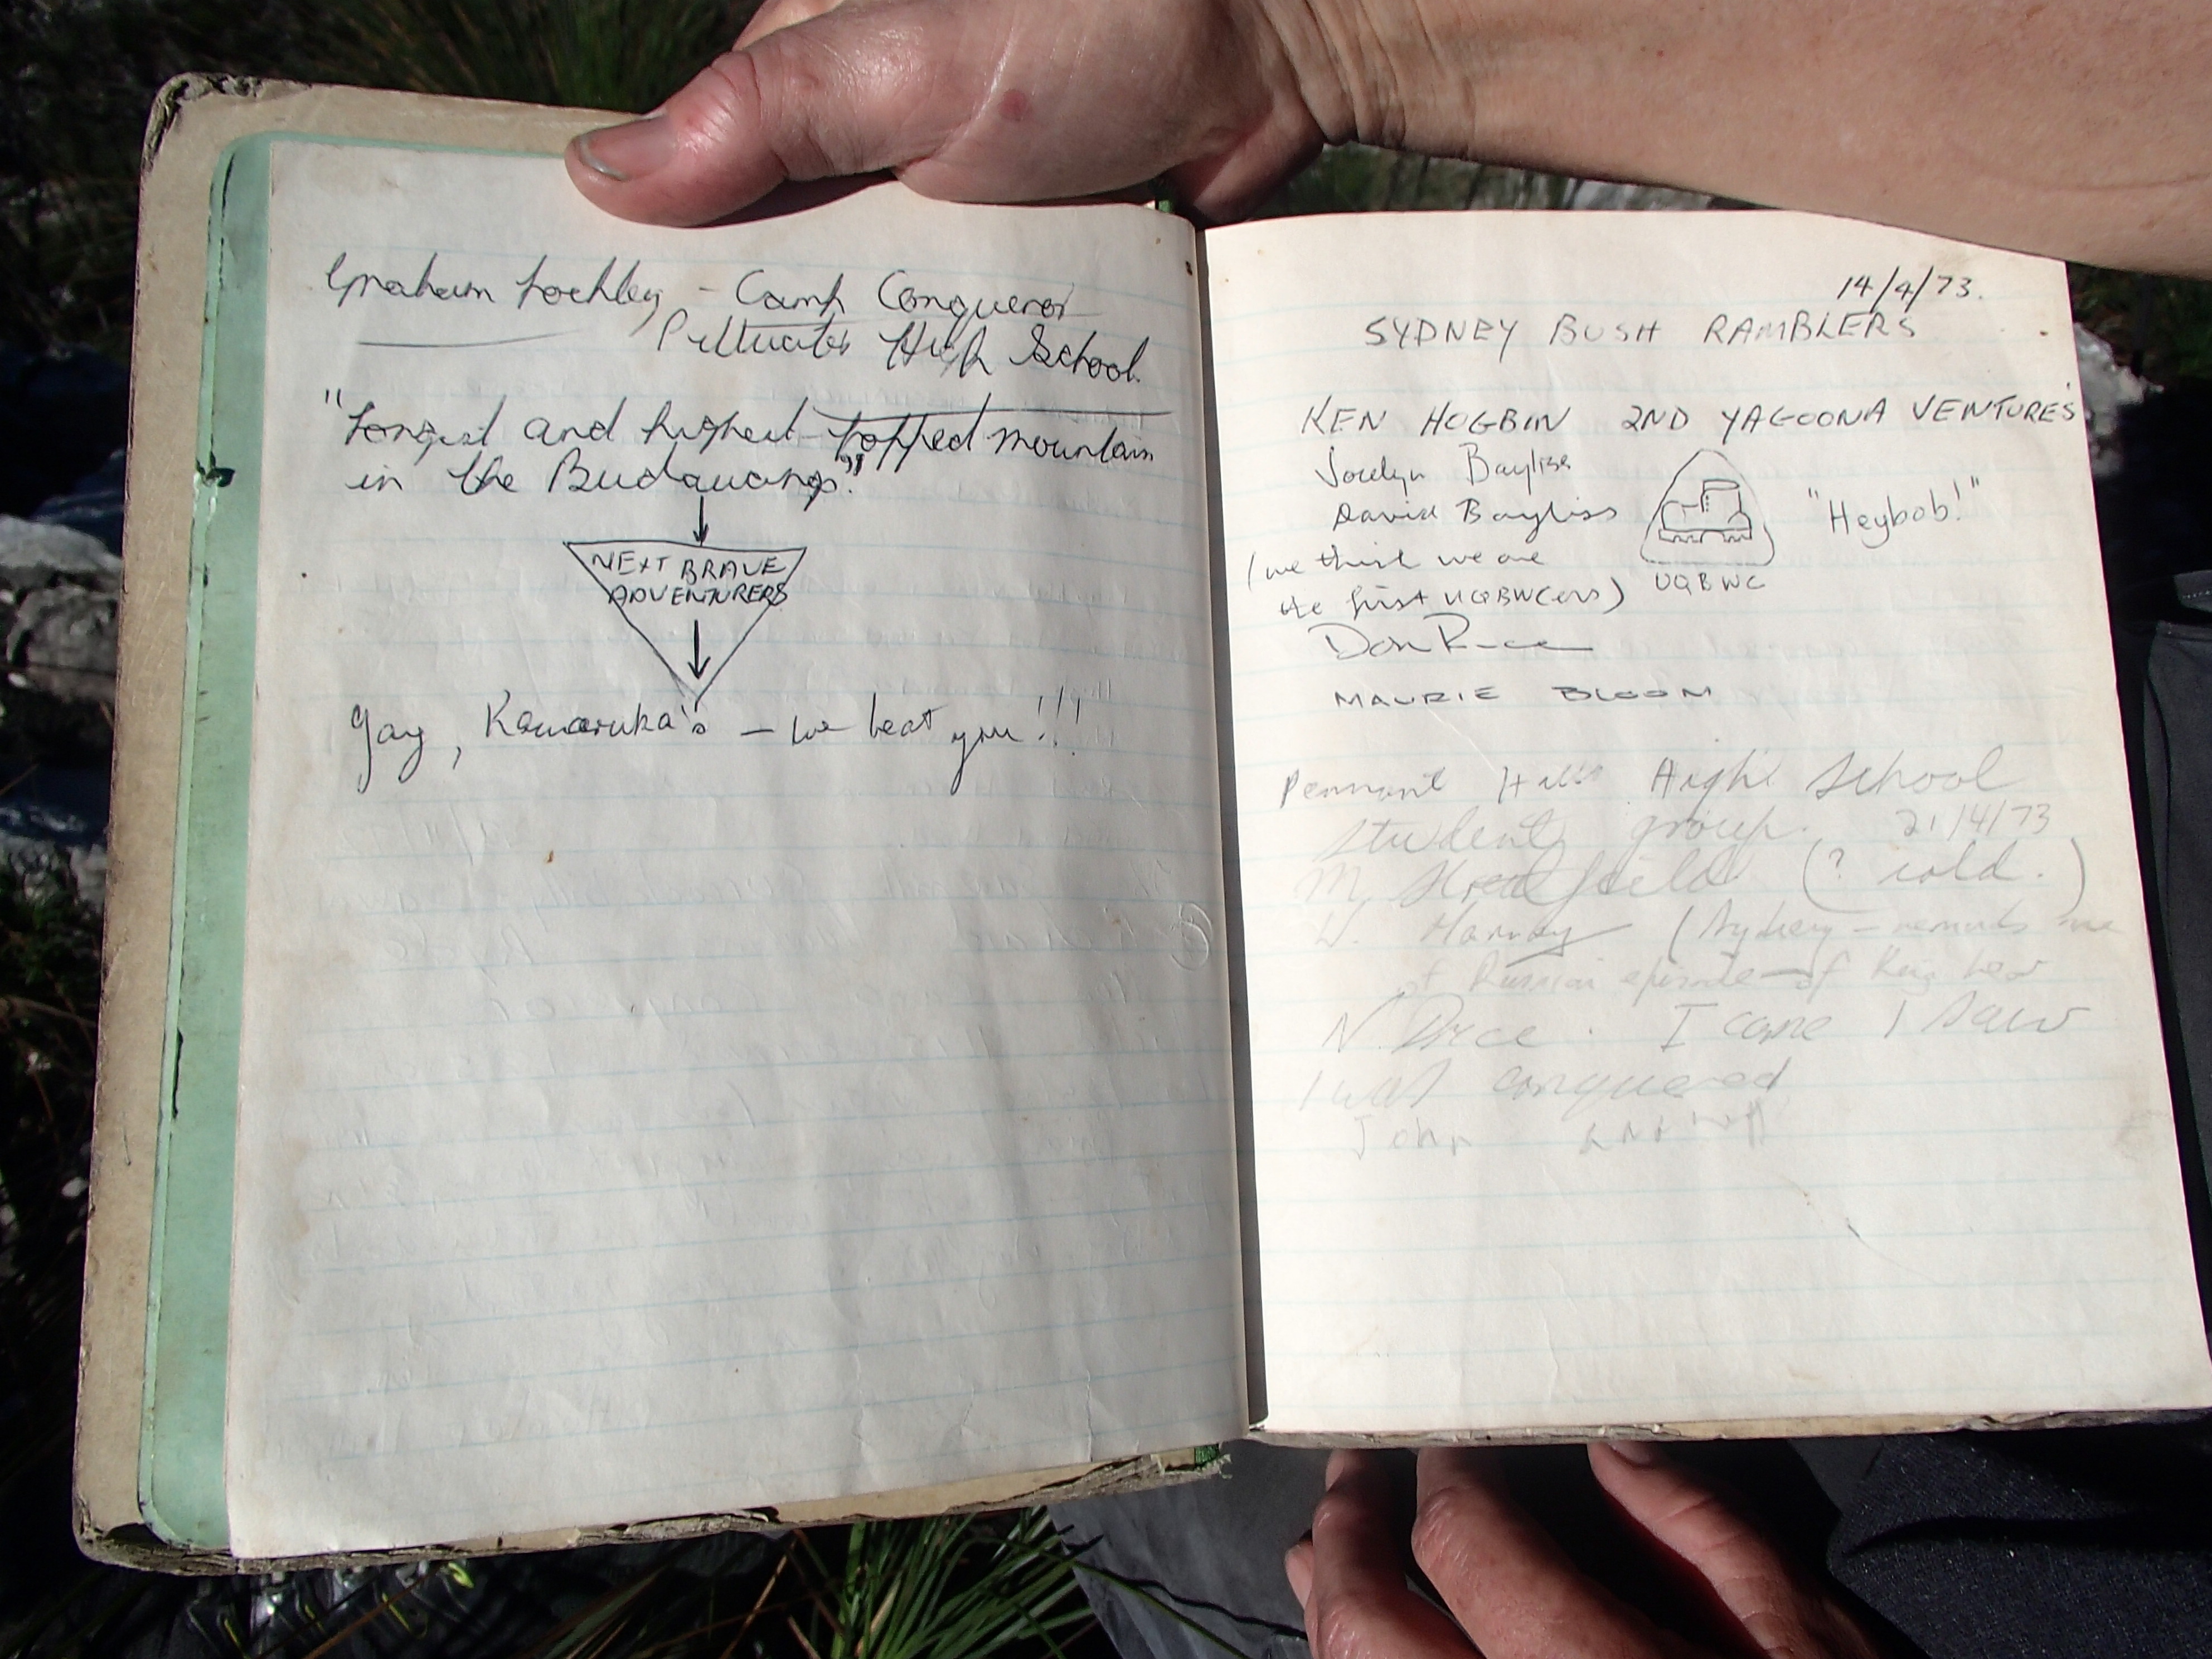 Graham Lockley - Camp Conqueror
Pittwater High School
"Longest and highest topped mountain
in the Budawangs."
NEXT BRAVE
ADVENTURERS
Gay, Kameruka's - we beat you!!!
14/4/73.
SYDNEY BUSH RAMBLERS
KEN HOGBIN 2ND YAGOONA VENTURES
Jocelyn Bayliss
David Bayliss
"Heybob!"
(we think we are
the first UQBWCers)
UQBWC
Don R
MAURIE BLOOM
Pennant Hills High School
student group. 21/4/73
M. (? cold.)
W. Harvey (Sydney - reminds me
of Russian episode of King Lear
N. I came I saw
I was conquered
John